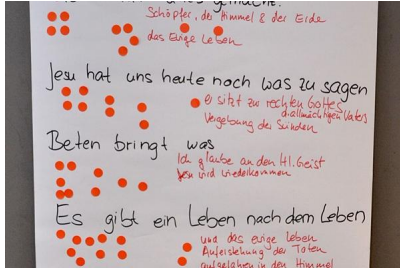 gemacht.
Schöpfer, der Himmel & der Erde
das Ewige Leben
Jesu hat uns heute noch was zu sagen
er sitzt zu rechten Gottes
d. allmächtigen Vaters
Vergebung der Sünden
Beten bringt was
Ich glaube an den Hl. Geist
wird wiederkommen
Es gibt ein Leben nach dem Leben
und das ewige Leben
Auferstehung der Toten
aufgefahren in den Himmel